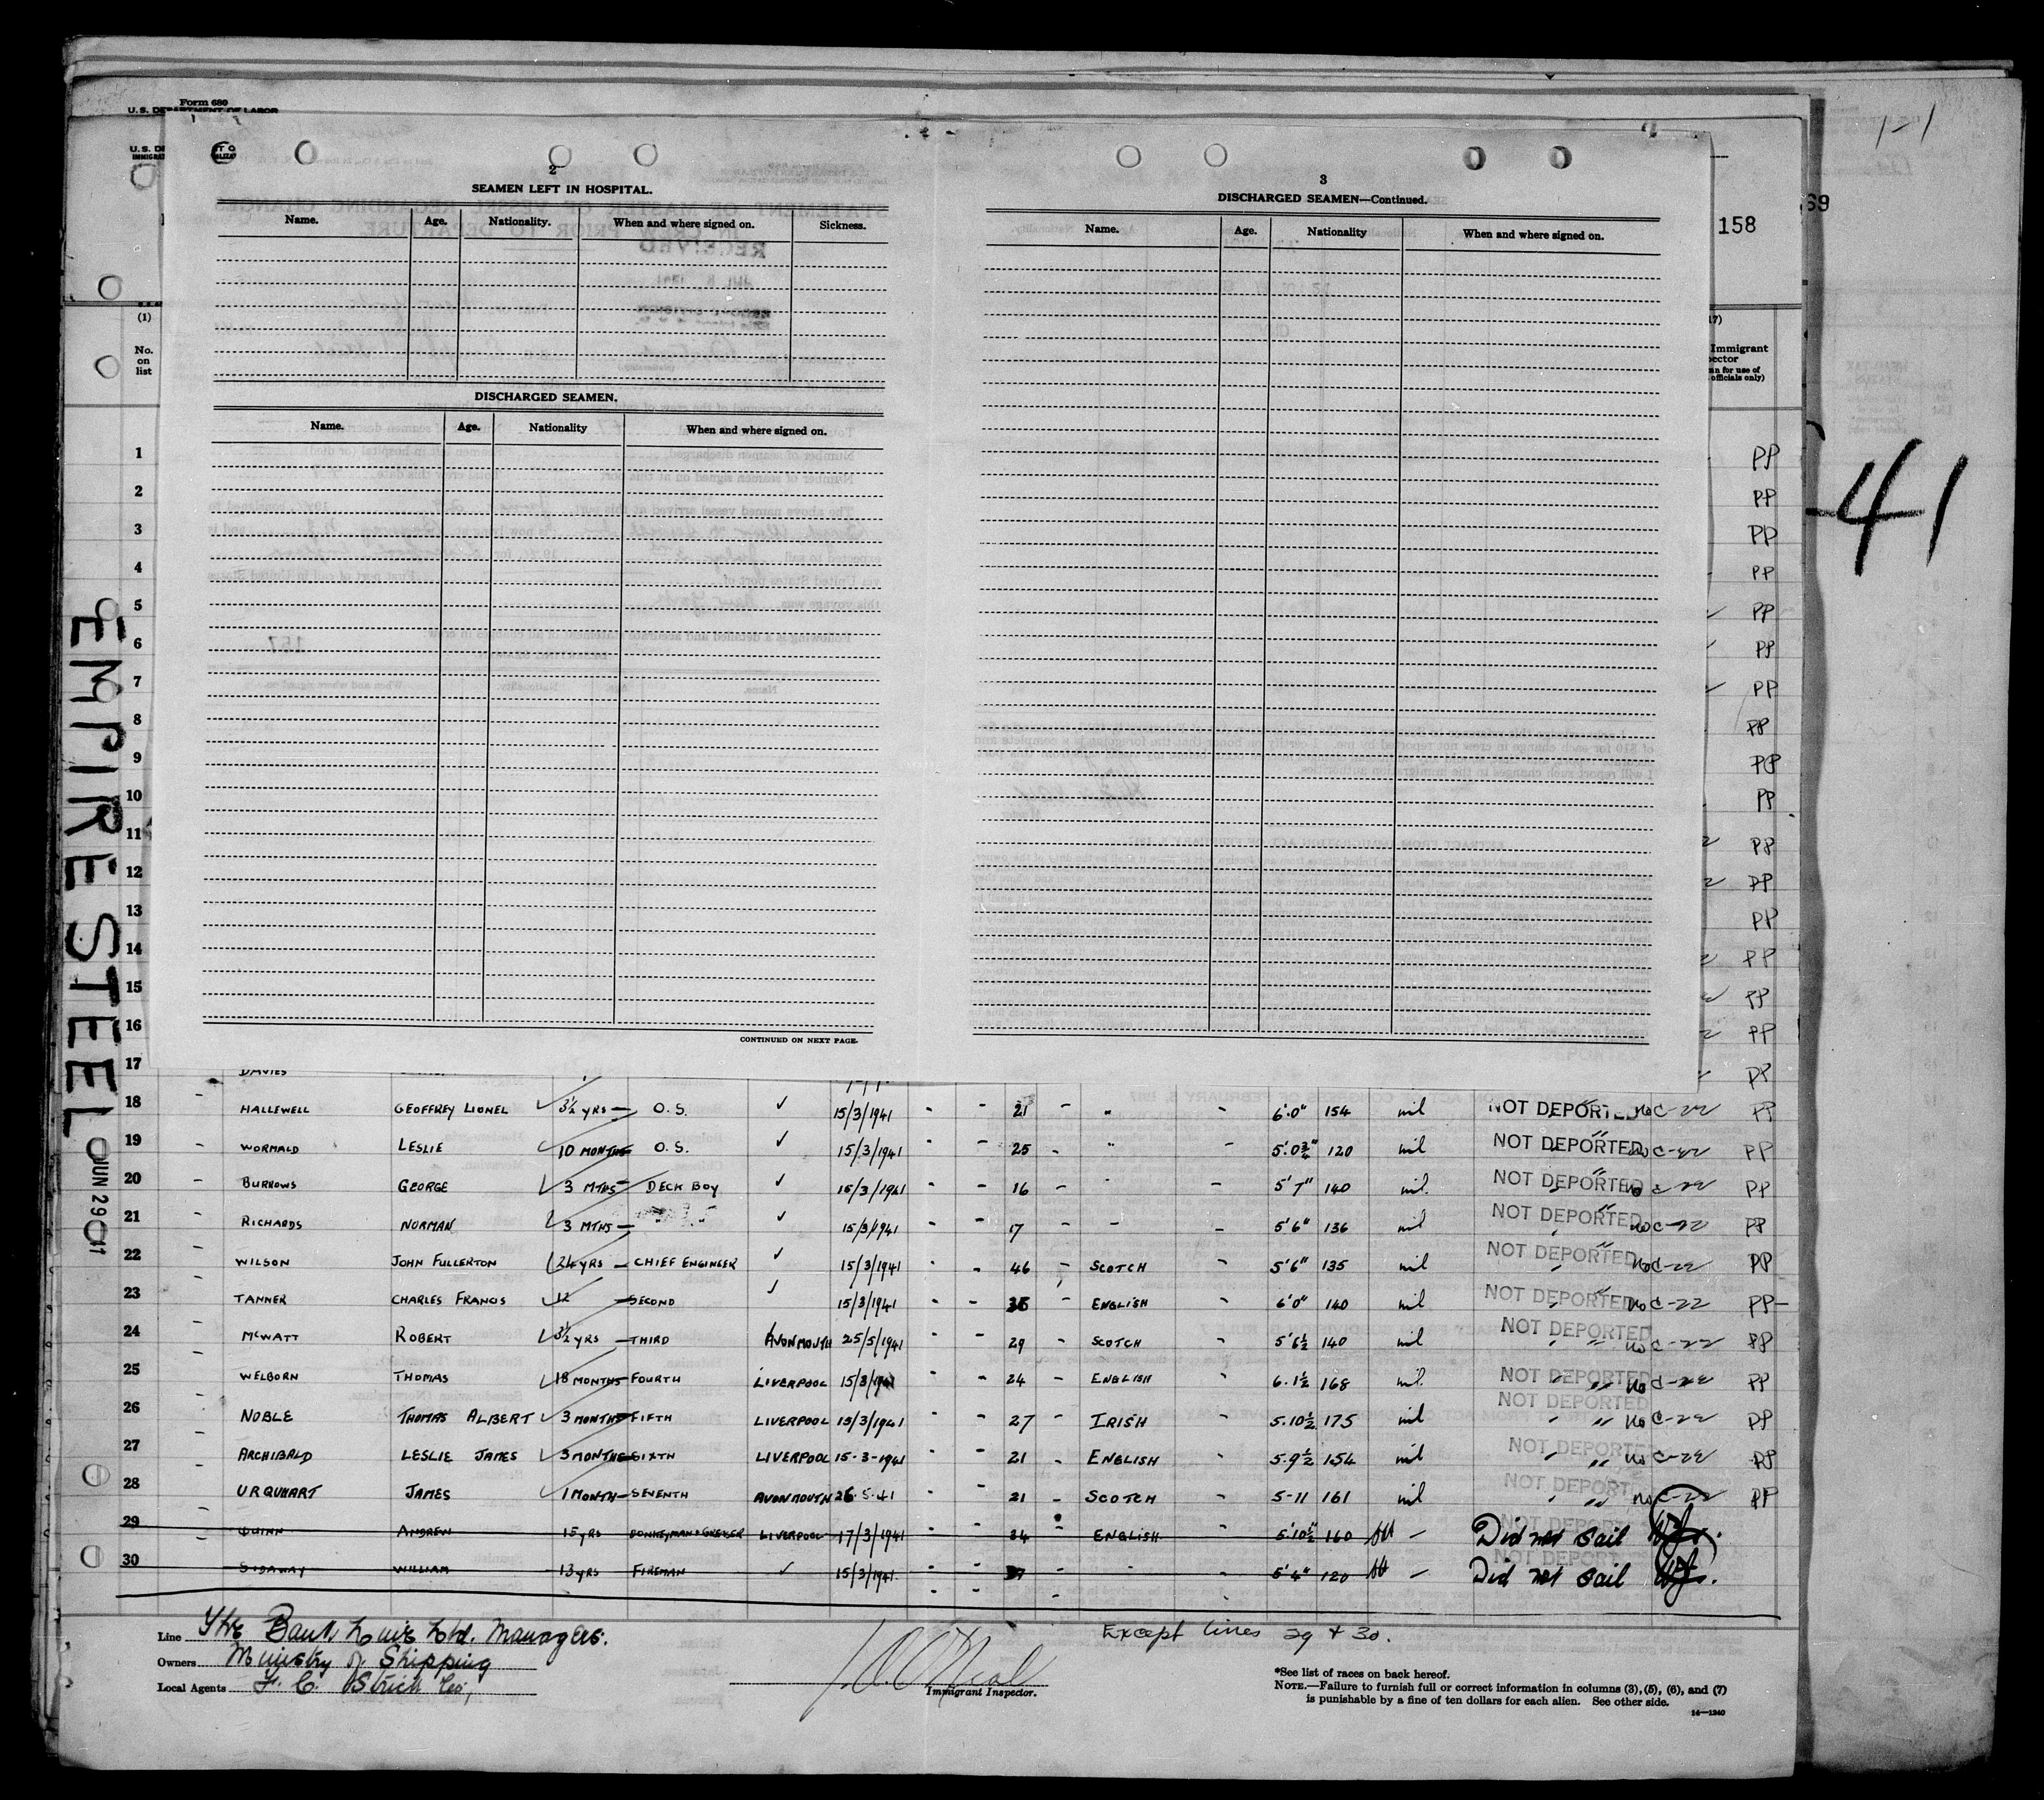 Form 680
U.S. DEPARTMENT OF LABOR
2
SEAMEN LEFT IN HOSPITAL.
Name. Age. Nationality. When and where signed on. Sickness.
DISCHARGED SEAMEN.
Name. Age. Nationality When and where signed on.
CONTINUED ON NEXT PAGE.
3
DISCHARGED SEAMEN—Continued.
Name. Age. Nationality When and where signed on.
158
69
1-1
41
EMPIRE STEEL
JUN 29
(1)
No. on list
Immigrant
officials only)
1 PP
2 PP
3 PP
4 PP
5 PP
6 PP
7 PP
8 PP
9 PP
10 PP
11 PP
12 PP
13 PP
14 PP
15 PP
16 PP
17 DAVIES PP
18 - HALLEWELL GEOFFREY LIONEL ✓ 3½ YRS - O.S. ✓ 15/3/1941 - - 21 - " - 6'.0" 154 nil NOT DEPORTED " No C-22 PP
19 - WORMALD LESLIE ✓ 10 MONTHS O.S. ✓ 15/3/1941 - - 25 - " - 5'.0¾" 120 nil NOT DEPORTED " No C-22 PP
20 - BURROWS GEORGE ✓ 3 MTHS - DECK BOY ✓ 15/3/1941 - - 16 - " - 5'7" 140 nil. NOT DEPORTED " No C-22 PP
21 - RICHARDS NORMAN ✓ 3 MTHS - " " ✓ 15/3/1941 - - 17 - - - 5'6" 136 nil NOT DEPORTED " No C-22 PP
22 - WILSON JOHN FULLERTON ✓ 24 YRS - CHIEF ENGINEER ✓ 15/3/1941 - - 46 - SCOTCH - 5'6" 135 nil NOT DEPORTED " No C-22 PP
23 - TANNER CHARLES FRANCIS ✓ 12 - SECOND ✓ 15/3/1941 - - - ENGLISH - 6'0" 140 nil NOT DEPORTED " No C-22 PP-
24 - McWATT ROBERT ✓ 3½ YRS - THIRD AVONMOUTH 25/5/1941 - 29 - SCOTCH - 5'6½ 140 nil NOT DEPORTED " No C-22 PP
25 - WELBORN THOMAS ✓ 18 MONTHS - FOURTH LIVERPOOL 15/3/1941 - - 24 - ENGLISH - 6.1½ 168 nil. NOT DEPORTED " No C-22 PP
26 - NOBLE THOMAS ALBERT ✓ 3 MONTHS - FIFTH LIVERPOOL 15/3/1941 - - 27 - IRISH - 5.10½ 175 nil NOT DEPORTED " No C-22 PP
27 - ARCHIBALD LESLIE JAMES ✓ 3 MONTHS - SIXTH LIVERPOOL 15-3-1941 - - 21 - ENGLISH - 5.9½ 154 nil NOT DEPORTED " No C-22 PP
28 - URQUHART JAMES ✓ 1 MONTH - SEVENTH AVONMOUTH 26.5.41 - - 21 - SCOTCH - 5-11 161 nil NOT DEPORT " No C-22 PP
29 - QUINN ANDREW 15 YRS DONKEYMAN & GREASER LIVERPOOL 17/3/1941 - - 34 - ENGLISH - 5'10½" 160 - Did not sail
30 - SIDAWAY WILLIAM 13 YRS FIREMAN ✓ 15/3/1941 - - - " - 5'4" 120 - Did not sail
Line The Bank Line Ltd. Managers.
Owners Ministry of Shipping
Local Agents F. C. Strick Co,
Immigrant Inspector.
Except lines 29 & 30.
*See list of races on back hereof.
NOTE.—Failure to furnish full or correct information in columns (3), (5), (6), and (7)
is punishable by a fine of ten dollars for each alien. See other side.
14—1240